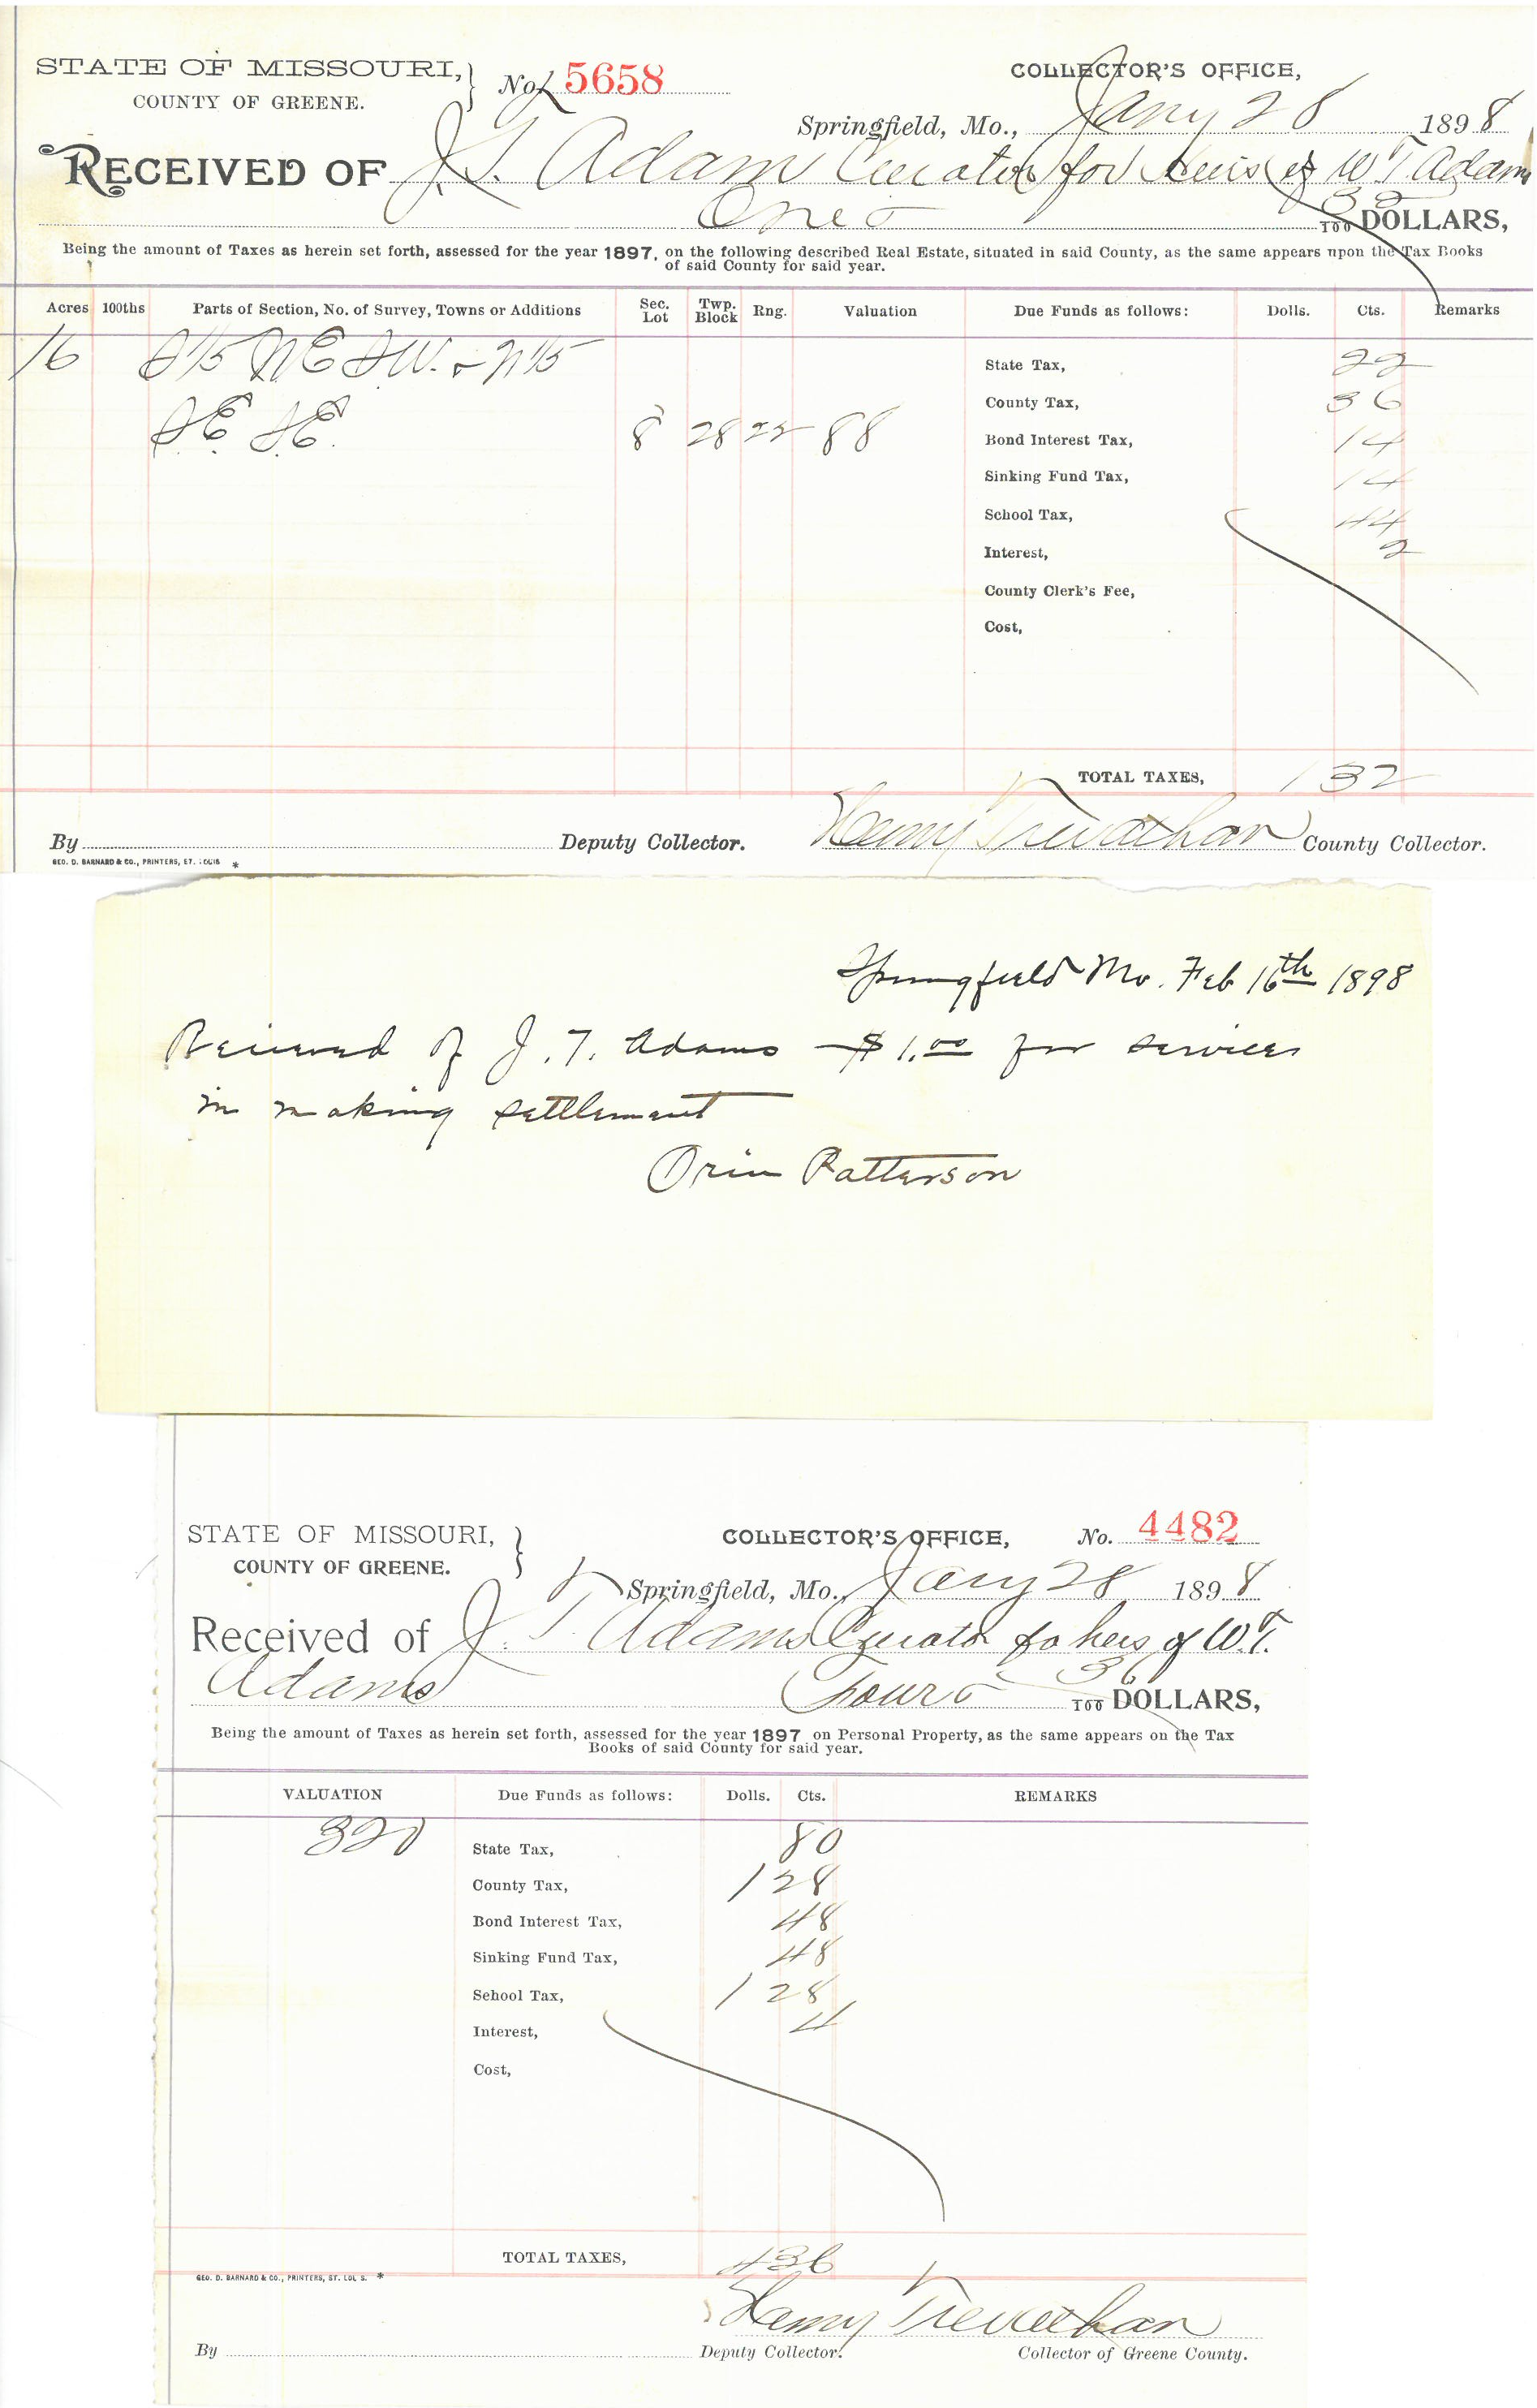 STATE OF MISSOURI, } No. 5658 COLLECTOR'S OFFICE,
COUNTY OF GREENE.
Springfield, Mo., Jany 28 1898
RECEIVED OF J. T. Adams Curator for heirs of W T Adams
One & 32/100 DOLLARS,
Being the amount of Taxes as herein set forth, assessed for the year 1897, on the following described Real Estate, situated in said County, as the same appears upon the Tax Books
of said County for said year.
Acres 100ths Parts of Section, No. of Survey, Towns or Additions Sec. Lot Twp. Block Rng. Valuation Due Funds as follows: Dolls. Cts. Remarks
16 S 1/5 NE SW. & N 1/5 State Tax, 22
County Tax, 36
SE SE. 8 28 22 88 Bond Interest Tax, 14
Sinking Fund Tax, 14
School Tax, 44
Interest, 2
County Clerk's Fee,
Cost,
TOTAL TAXES, 1 32
By Deputy Collector. Henry Trevathan County Collector.
GEO. D. BARNARD & CO., PRINTERS, ST. LOUIS *
Springfield Mo. Feb 16th 1898
Received of J. T. Adams $1.00 for services
in making settlement
Orin Patterson
STATE OF MISSOURI, } COLLECTOR'S OFFICE, No. 4482
COUNTY OF GREENE.
Springfield, Mo., Jany 28 1898
Received of J. T. Adams Curator fo heirs of W. T.
Adams Four & 36/100 DOLLARS,
Being the amount of Taxes as herein set forth, assessed for the year 1897 on Personal Property, as the same appears on the Tax
Books of said County for said year.
VALUATION Due Funds as follows: Dolls. Cts. REMARKS
320 State Tax, 80
County Tax, 1 28
Bond Interest Tax, 48
Sinking Fund Tax, 48
School Tax, 1 28
Interest, 4
Cost,
TOTAL TAXES, 4 36
GEO. D. BARNARD & CO., PRINTERS, ST. LOUIS. *
Henry Trevathan
By Deputy Collector. Collector of Greene County.